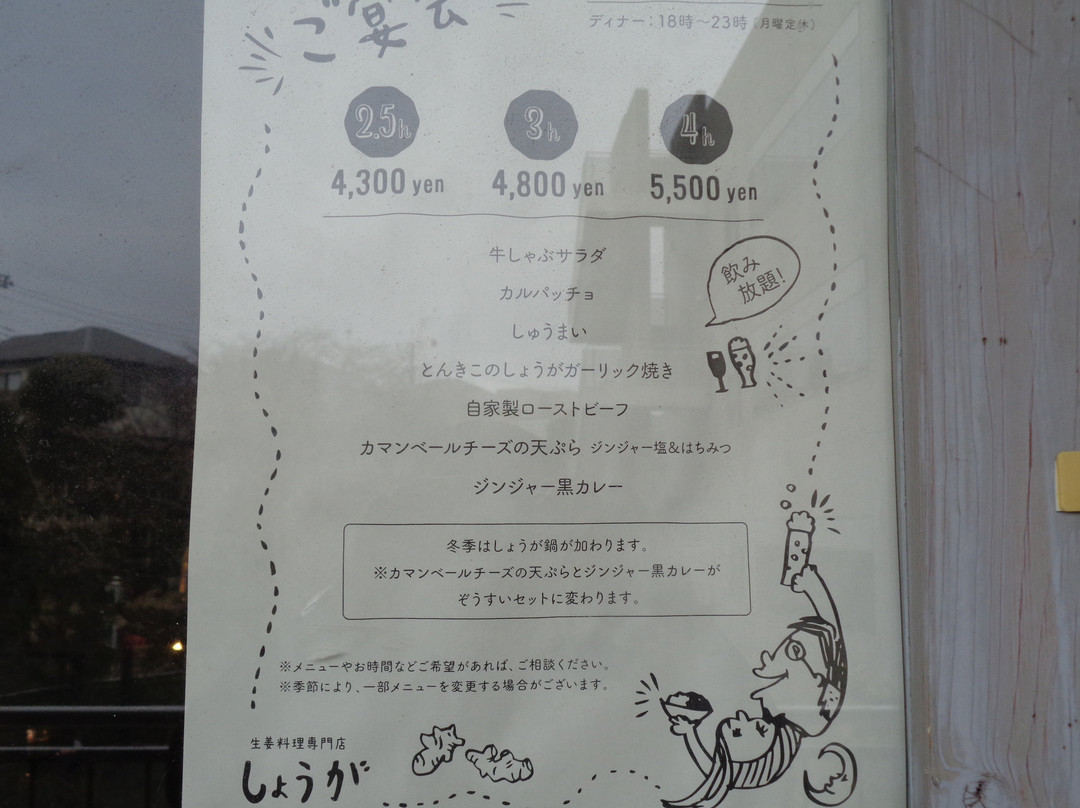 ご宴会
ディナー：18時〜23時（月曜定休）
2.5h 3h 4h
4,300 yen 4,800 yen 5,500 yen
牛しゃぶサラダ
カルパッチョ
しゅうまい
とんきこのしょうがガーリック焼き
自家製ローストビーフ
カマンベールチーズの天ぷら ジンジャー塩&はちみつ
ジンジャー黒カレー
飲み
放題!
冬季はしょうが鍋が加わります。
※カマンベールチーズの天ぷらとジンジャー黒カレーが
ぞうすいセットに変わります。
※メニューやお時間などご希望があれば、ご相談ください。
※季節により、一部メニューを変更する場合がございます。
生姜料理専門店
しょうが